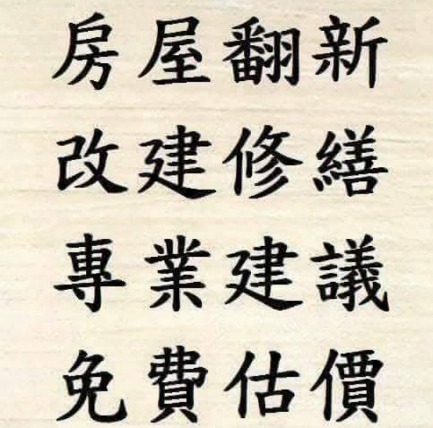 房屋翻新
改建修繕
專業建議
免費估價